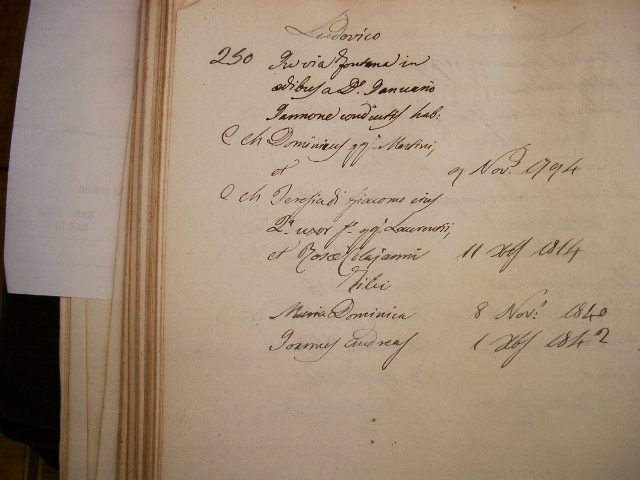 Ludovico
250 In via Fontana in
ædibus a D. Januario
Jannone conductis hab:
C ch Dominicus qq. Martini,
et 9 Nov. 1794
C ch Teresia di Giacomo ejus
2.a uxor f.a qq. Laurentii,
et Rosæ 11 Xbs 1814
Filii
Maria Dominica 8 Nov. 1840
Joannes Andreas 1 Xbs 1842